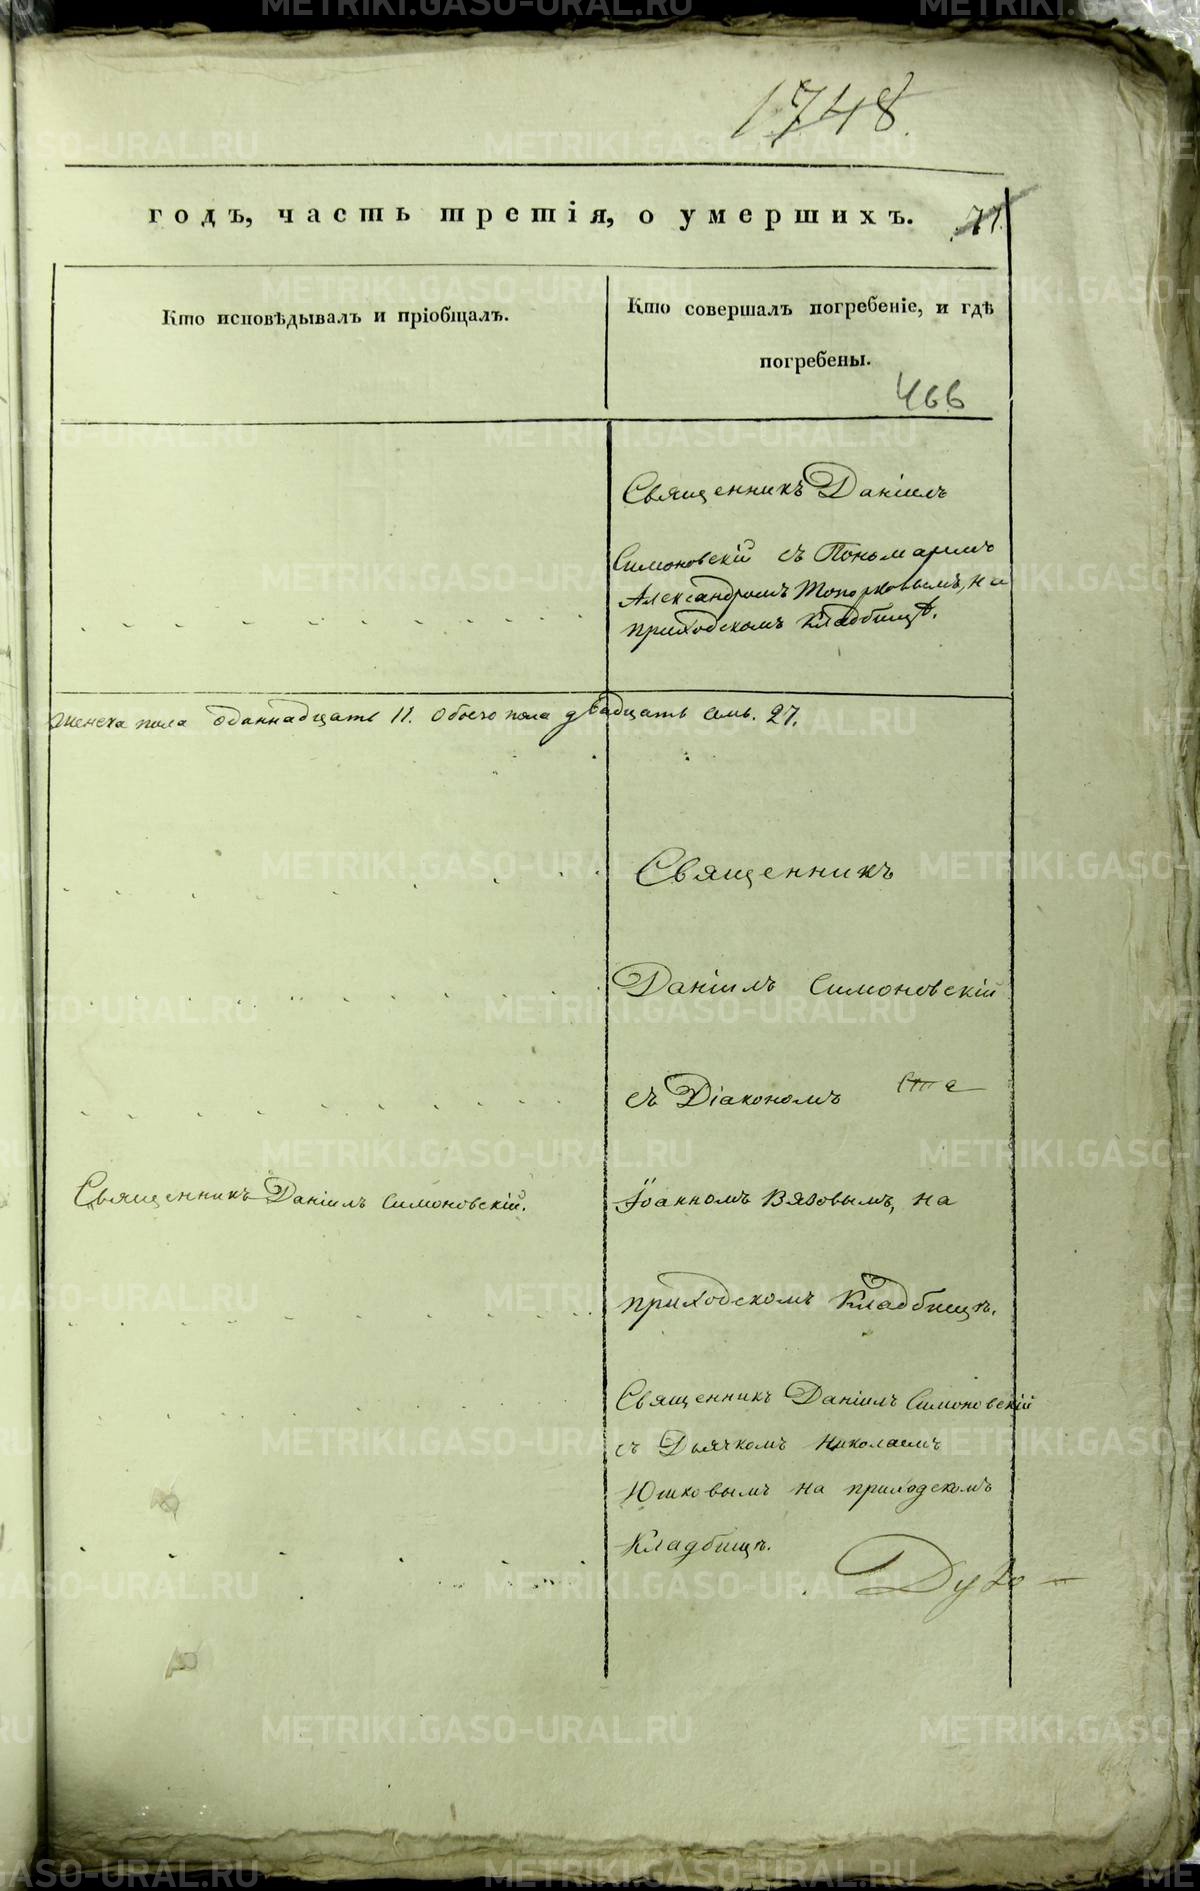 1748.
годъ, часть третія, о умершихъ.
77.
Кто исповѣдывалъ и пріобщалъ.
Кто совершалъ погребеніе, и гдѣ
погребены.
466
Священникъ Даніилъ
Симоновскій съ Пономаремъ
Александромъ Топорковымъ, на
приходскомъ кладбищѣ.
женска пола одиннадцать 11. Обоего пола двадцать семь. 27.
Священникъ
Даніилъ Симоновскій
съ Діакономъ
Священникъ Даніилъ Симоновскій.
Іоанномъ Вязовымъ, на
приходскомъ Кладбищѣ.
Священникъ Даніилъ Симоновскій
съ Дьячкомъ Николаемъ
Юшковымъ на приходскомъ
Кладбищѣ.
Духо-
METRIKI.GASO-URAL.RU